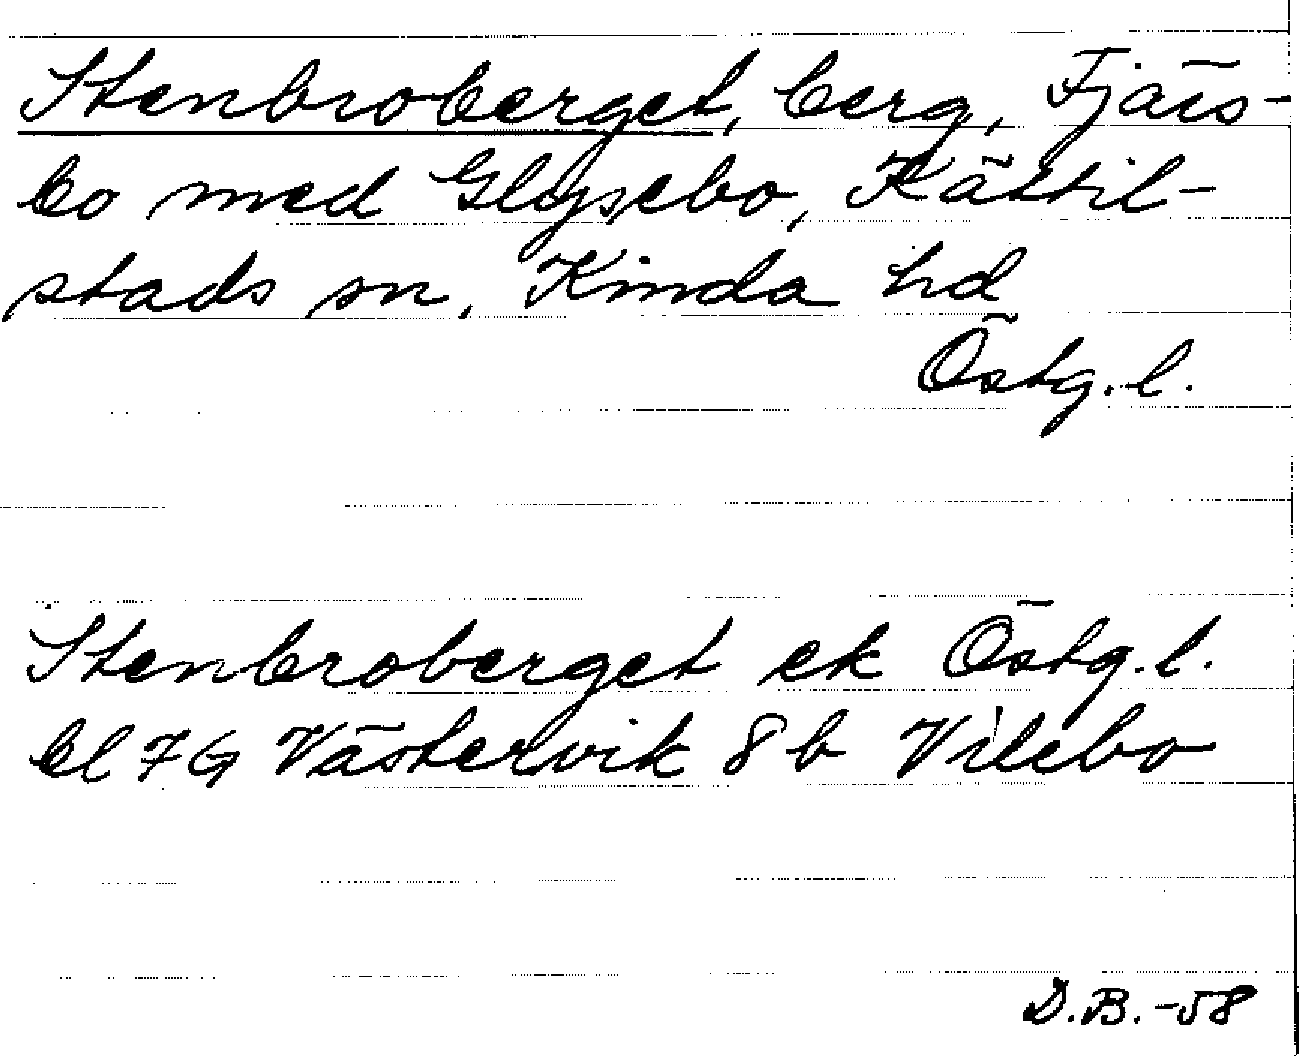 Stenbroberget, berg, Fjärs-
bo med Glysebo, Kättil-
stads sn, Kinda hd
Östg. l.
Stenbroberget ek Östg. l.
bl 7G Västervik 8 b Vilebo
D.B. -58